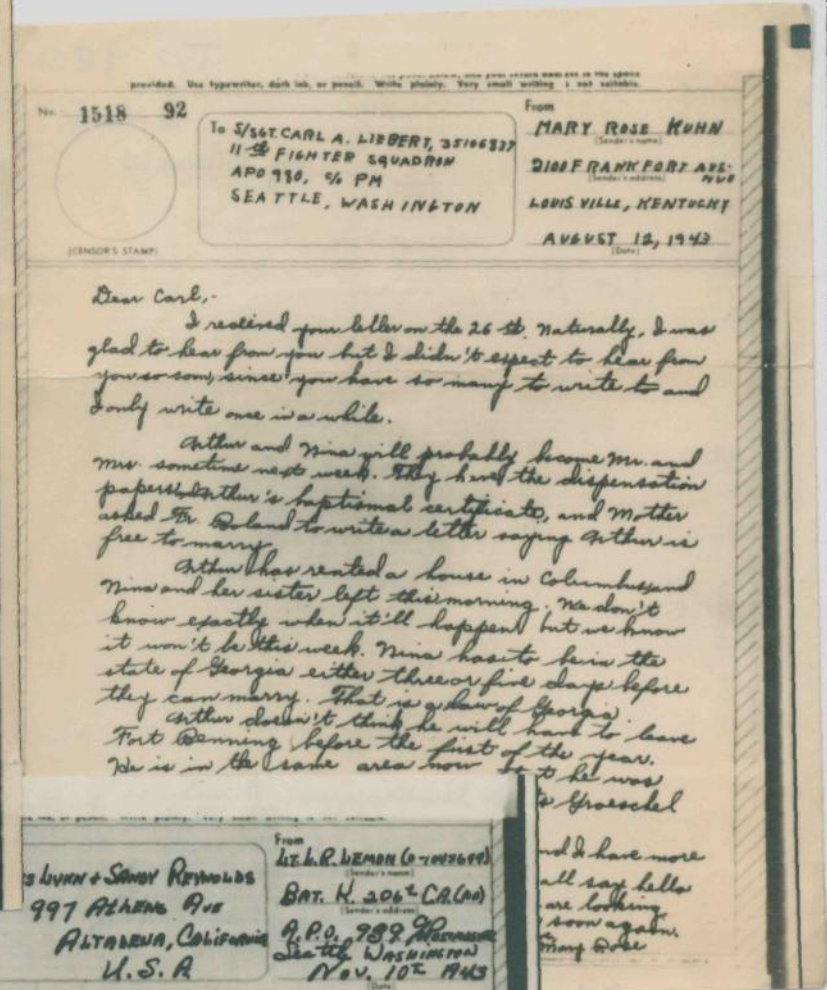 provided. Use typewriter, dark ink, or pencil. Write plainly. Very small writing is not suitable.
No. 1518 92
(CENSOR'S STAMP)
To S/SGT. CARL A. LIEBERT, 35106837
11th FIGHTER SQUADRON
APO 980, c/o PM
SEATTLE, WASHINGTON
From
MARY ROSE KUHN
(Sender's name)
2100 FRANKFORT AVE-
NUE
(Sender's address)
LOUISVILLE, KENTUCKY
AUGUST 12, 1943
(Date)
Dear Carl,-
I received your letter on the 26 th. Naturally, I was
glad to hear from you but I didn't expect to hear from
you so soon, since you have so many to write to and
I only write once in a while.
Arthur and Nina will probably become Mr. and
Mrs. sometime next week. They have the dispensation
papers, Arthur's baptismal certificate, and Mother
asked Fr. Boland to write a letter saying Arthur is
free to marry.
Arthur has rented a house in Columbus, and
Nina and her sister left this morning. We don't
know exactly when it'll happen, but we know
it won't be this week. Nina has to be in the
state of Georgia either three or five days before
they can marry. That is a law of Georgia.
Arthur doesn't think he will have to leave
Fort Benning before the first of the year.
He is in the same area now he was
Groeschel
nd I have more
all say hello
are looking
soon again.
Mary Rose
LYNN + SANDY REYNOLDS
997 ATHENS AVE
ALTADENA, CALIFORNIA
U.S.A
From
LT. L.R. LEMON
(Sender's name)
BAT. K. 206th C.A.(AA)
(Sender's address)
A.P.O. 939 % POSTMASTER
Seattle WASHINGTON
NOV. 10th 1943
(Date)